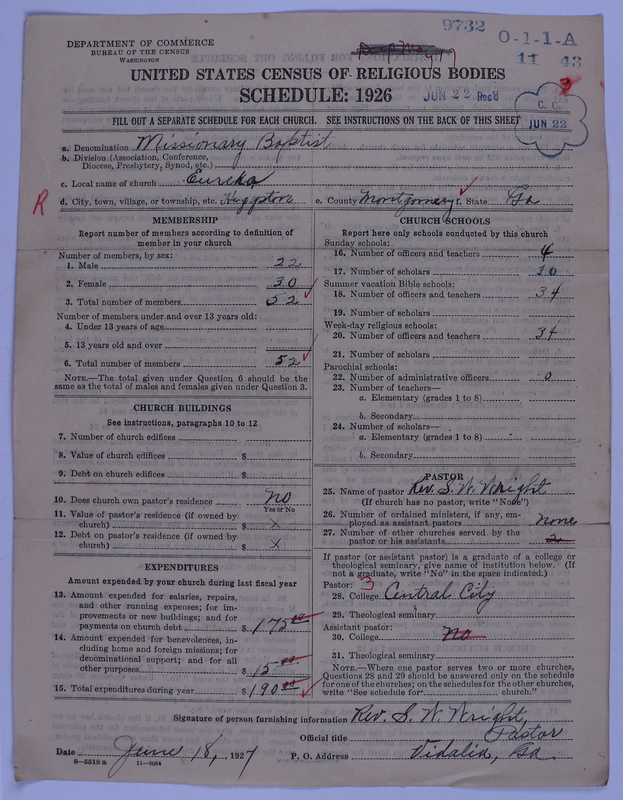 9732
O-1-1-A
11 43
DEPARTMENT OF COMMERCE
BUREAU OF THE CENSUS
WASHINGTON
UNITED STATES CENSUS OF RELIGIOUS BODIES
SCHEDULE: 1926
JUN 22 Rec'd
C. C.
JUN 22
FILL OUT A SEPARATE SCHEDULE FOR EACH CHURCH. SEE INSTRUCTIONS ON THE BACK OF THIS SHEET
a. Denomination Missionary Baptist
b. Division (Association, Conference,
Diocese, Presbytery, Synod, etc.)
c. Local name of church Eureka
R
d. City, town, village, or township, etc. Higgston e. County Montgomery f. State Ga
MEMBERSHIP
Report number of members according to definition of
member in your church
Number of members, by sex:
1. Male 22
2. Female 30
3. Total number of members 52
Number of members under and over 13 years old:
4. Under 13 years of age
5. 13 years old and over
6. Total number of members 52
NOTE.—The total given under Question 6 should be the
same as the total of males and females given under Question 3.
CHURCH BUILDINGS
See instructions, paragraphs 10 to 12
7. Number of church edifices
8. Value of church edifices $
9. Debt on church edifices $
10. Does church own pastor's residence no
Yes or No
11. Value of pastor's residence (if owned by
church) $ x
12. Debt on pastor's residence (if owned by
church) $ x
EXPENDITURES
Amount expended by your church during last fiscal year
13. Amount expended for salaries, repairs,
and other running expenses; for im-
provements or new buildings; and for
payments on church debt $ 175 00
14. Amount expended for benevolences, in-
cluding home and foreign missions; for
denominational support; and for all
other purposes $ 15 00
15. Total expenditures during year $ 190 00
CHURCH SCHOOLS
Report here only schools conducted by this church
Sunday schools:
16. Number of officers and teachers 4
17. Number of scholars 30
Summer vacation Bible schools:
18. Number of officers and teachers 34
19. Number of scholars
Week-day religious schools:
20. Number of officers and teachers 34
21. Number of scholars
Parochial schools:
22. Number of administrative officers 0
23. Number of teachers—
a. Elementary (grades 1 to 8)
b. Secondary
24. Number of scholars—
a. Elementary (grades 1 to 8)
b. Secondary
PASTOR
25. Name of pastor Rev. S. W. Wright
(If church has no pastor, write "None")
26. Number of ordained ministers, if any, em-
ployed as assistant pastors none
27. Number of other churches served by the
pastor or his assistants
If pastor (or assistant pastor) is a graduate of a college or
theological seminary, give name of institution below. (If
not a graduate, write "No" in the space indicated.)
Pastor: 3
28. College Central City
29. Theological seminary
Assistant pastor:
30. College no
31. Theological seminary
NOTE.—Where one pastor serves two or more churches,
Questions 28 and 29 should be answered only on the schedule
for one of the churches; on the schedules for the other churches,
write "See schedule for church."
Signature of person furnishing information Rev. S. W. Wright,
Official title Pastor
Date June 18, 1927 P. O. Address Vidalia, Ga.
8—5518a 11—9054